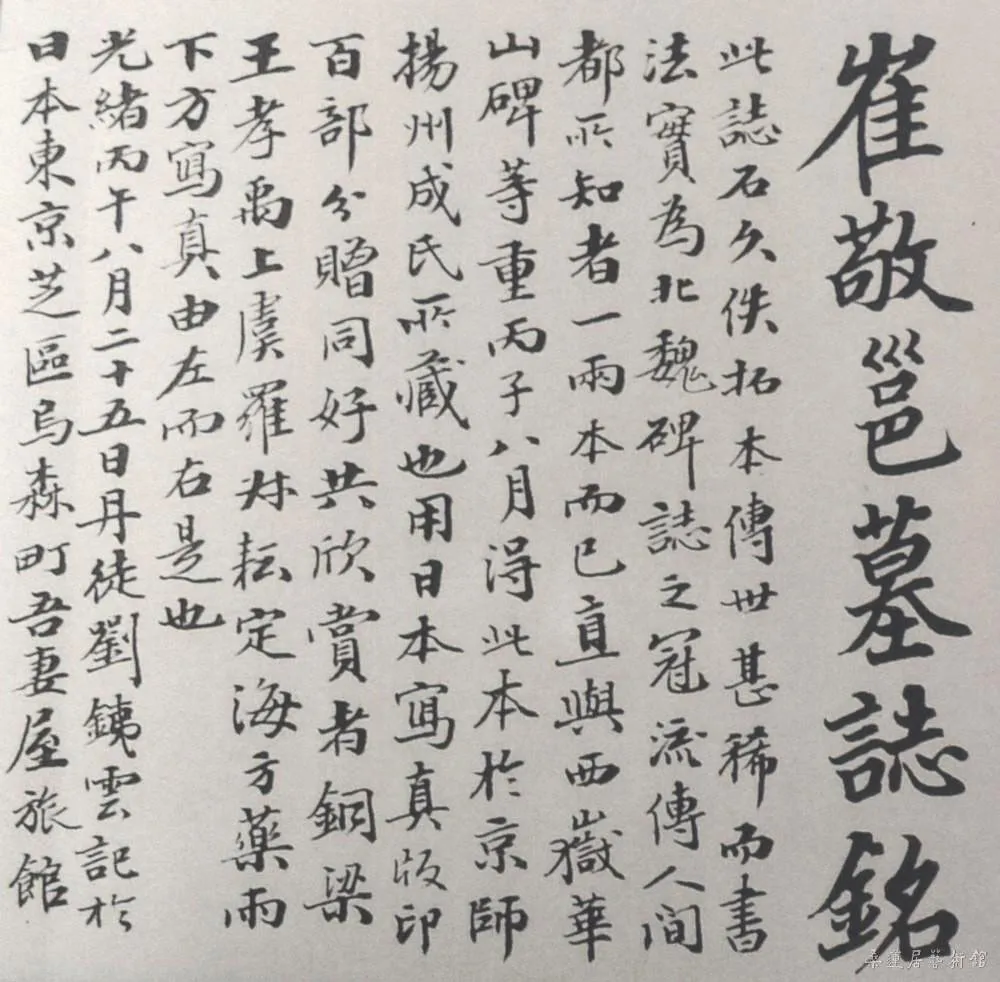 崔敬邕墓誌銘
此誌石久佚拓本傳世甚稀而書
法實為北魏碑誌之冠流傳人間
都所知者一兩本而已直與西嶽華
山碑等重丙子八月淂此本於京師
揚州成氏所藏也用日本寫真版印
百部分贈同好共欣賞者銅梁
王孝禹上虞羅尗耘定海方藥雨
下方寫真由左而右是也
光緒丙午八月二十五日丹徒劉銕雲記於
日本東京芝區烏森町吾妻屋旅館
桑蓮居藝術館